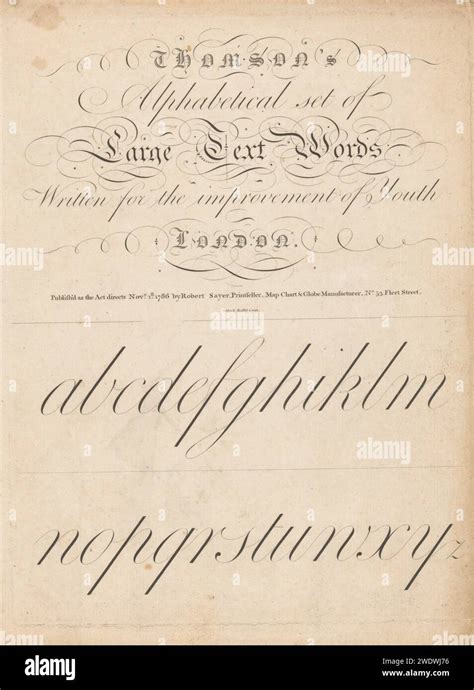 THOMSON's
Alphabetical set of
Large Text Words
Written for the improvement of Youth
LONDON.
Publish'd as the Act directs Novr. 1st. 1786 by Robert Sayer, Printseller, Map Chart & Globe Manufacturer, No. 53, Fleet Street.
abcdefghiklm
nopqrstuwxyz
alamy
Image ID: 2WDWJ76
www.alamy.com